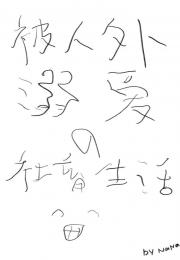 被人外
溺爱
の
社畜生活
by NaNa